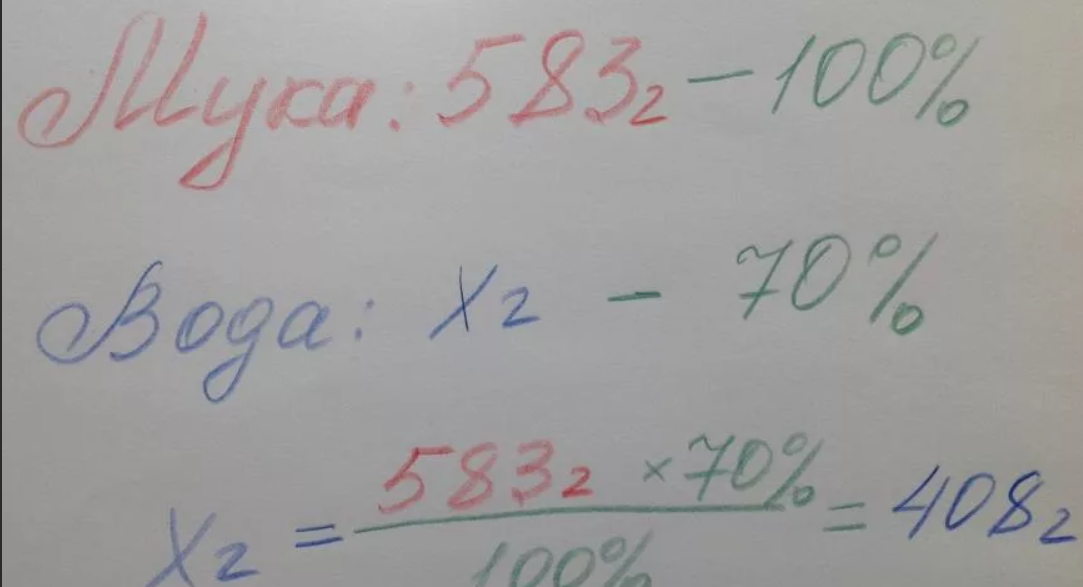 Мука: 583г – 100%
Вода: Xг – 70%
Xг = 583г × 70% / 100% = 408г